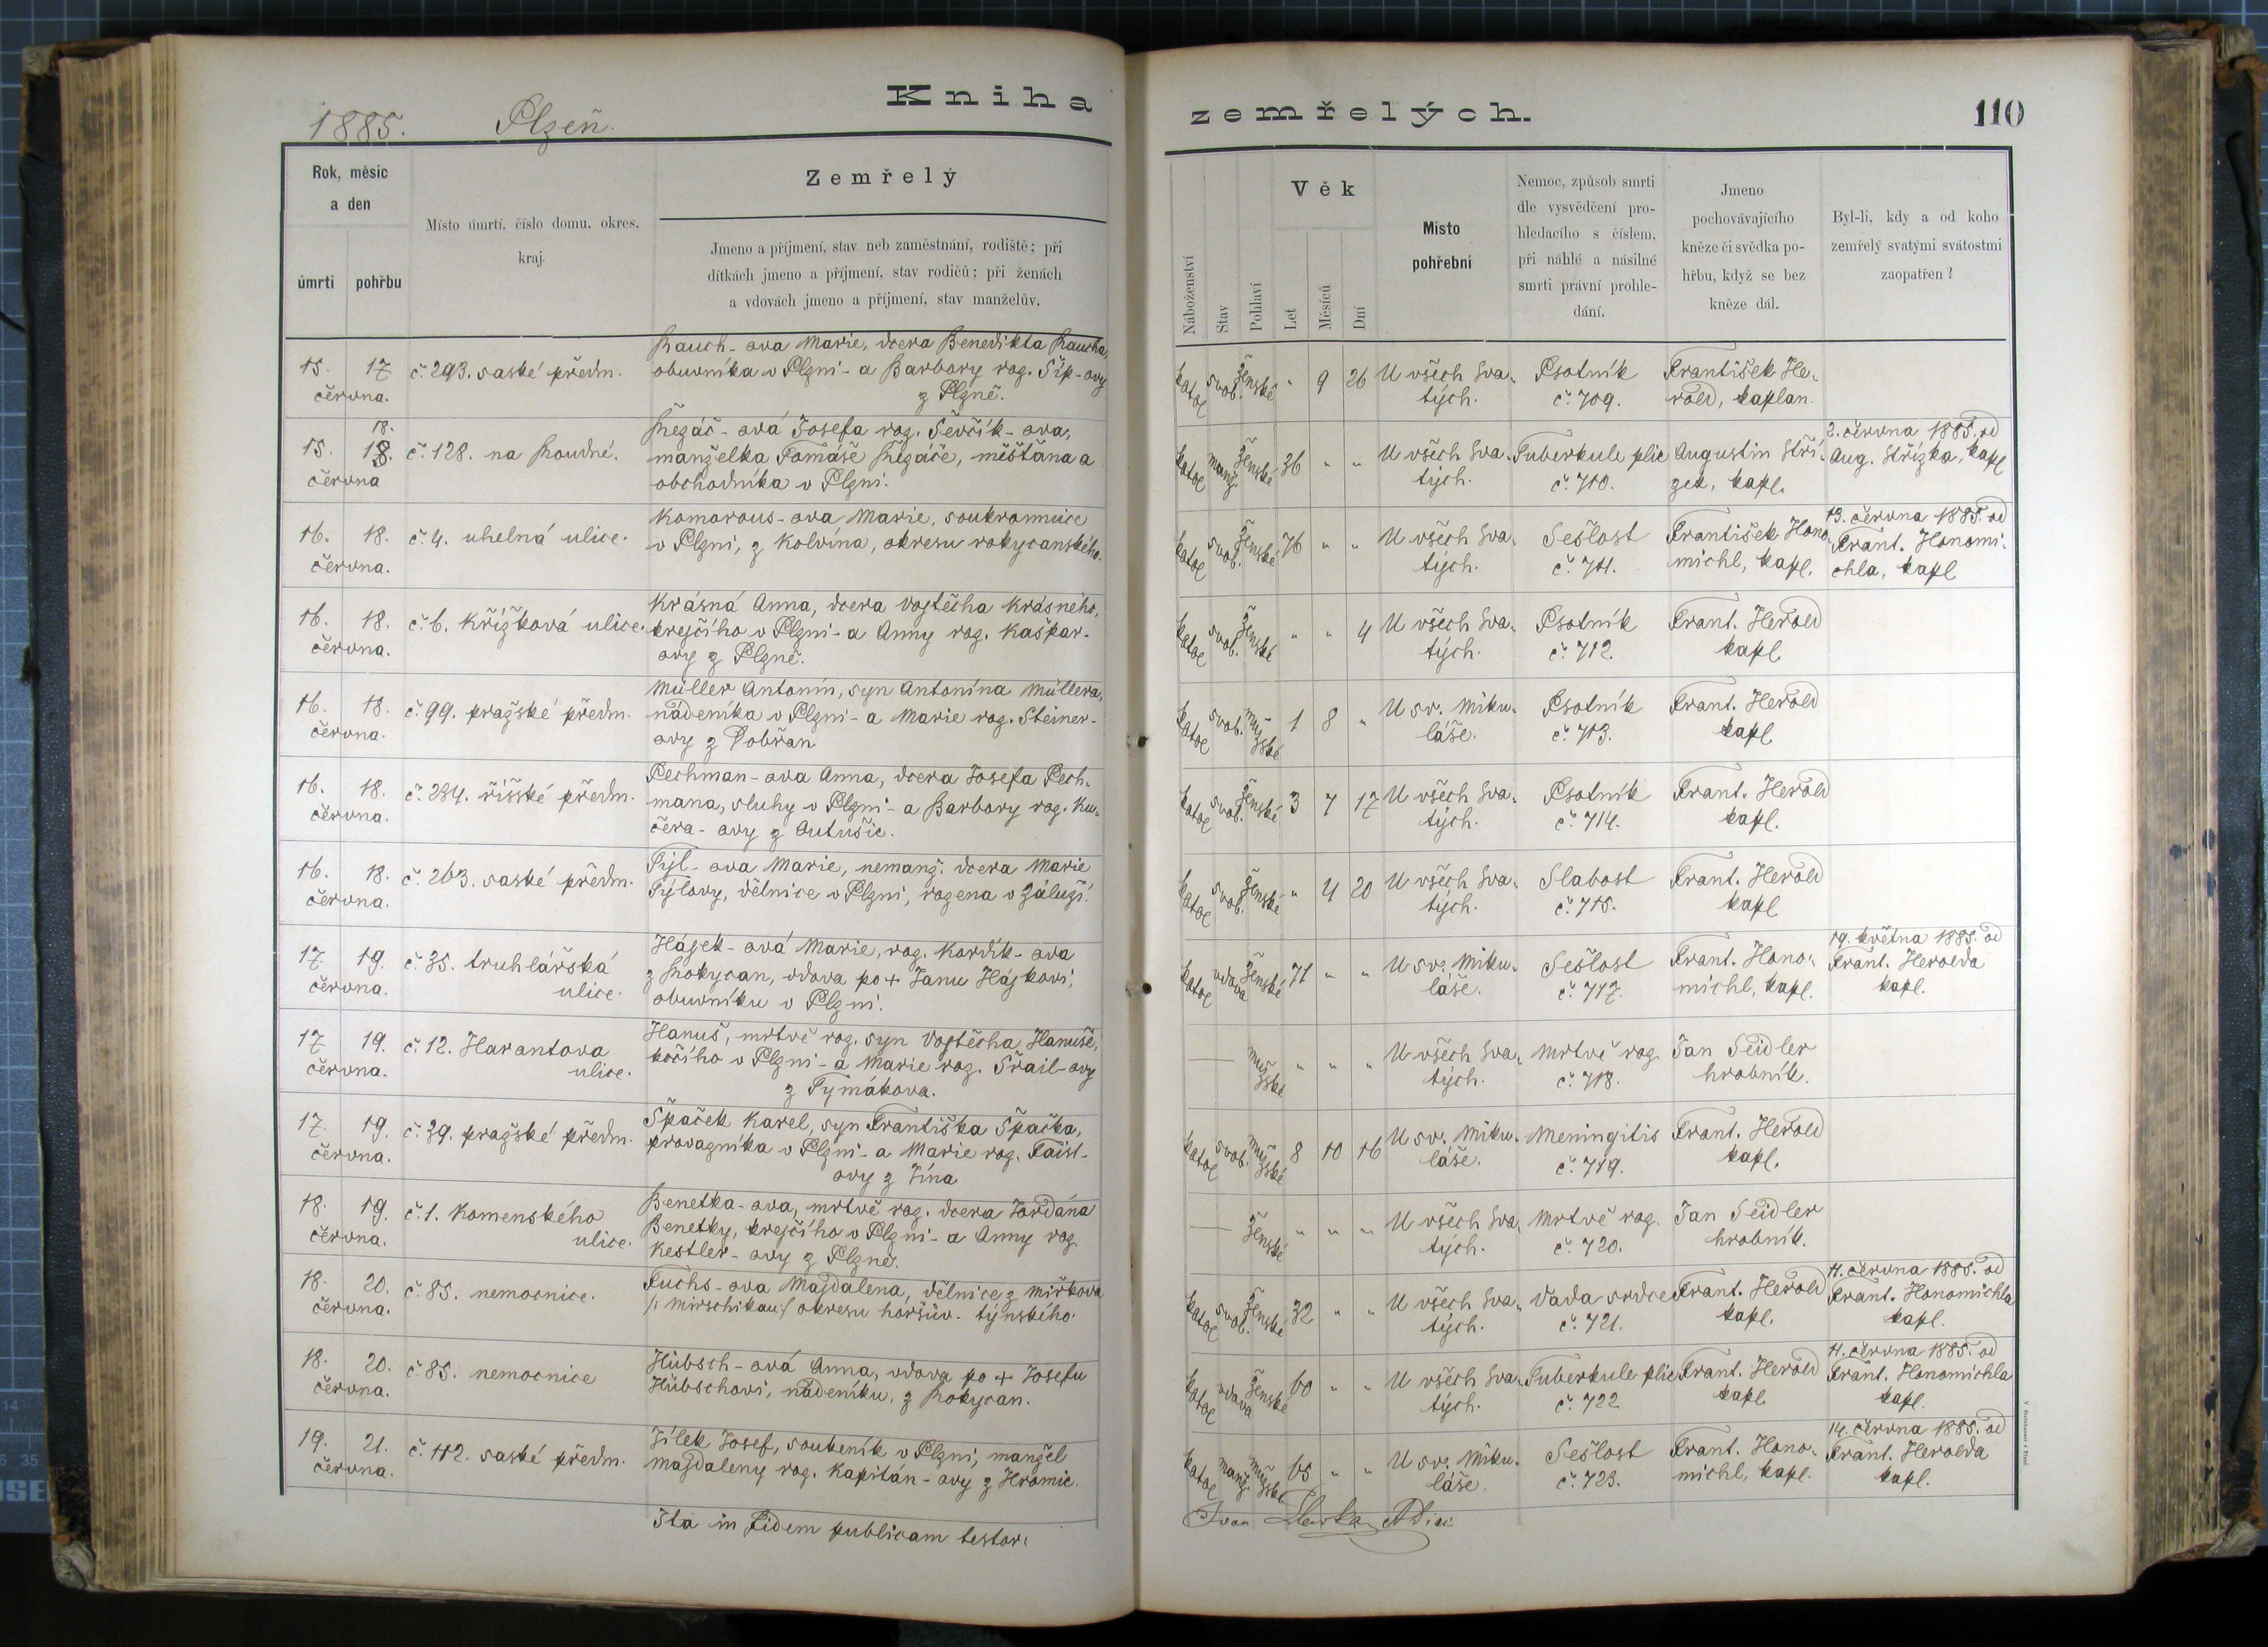 Kniha
1885. Plzeň.
Rok, měsíc
a den
úmrtí pohřbu
Místo úmrtí, číslo domu, okres,
kraj.
Zemřelý
Jmeno a příjmení, stav neb zaměstnání, rodiště; při
dítkách jmeno a příjmení, stav rodičů; při ženách
a vdovách jmeno a příjmení, stav manželův.
15. 17
června.
č. 293. saské předm.
Rauch-ova Marie, dcera Benedikta Raucha,
obuvníka v Plzni - a Barbory roz. Šíp-ovy
z Plzně.
18.
15. 18.
června
č. 128. na Roudné.
Řezáč-ová Josefa roz. Ševčík-ova,
manželka Tomáše Řezáče, měšťana a
obchodníka v Plzni.
16. 18.
června.
č. 4. uhelná ulice.
Komorous-ova Marie, soukromnice
v Plzni, z Kolvína, okresu rokycanského.
16. 18.
června.
č. 6. Křížková ulice.
Krásná Anna, dcera Vojtěcha Krásného,
krejčího v Plzni - a Anny roz. Kašpar-
ovy z Plzně.
16. 18.
června.
č. 99. pražské předm.
Müller Antonín, syn Antonína Müllera,
nádeníka v Plzni - a Marie roz. Steiner-
ovy z Dobřan
16. 18.
června.
č. 234. říšské předm.
Pechman-ova Anna, dcera Josefa Pech-
mana, sluhy v Plzni - a Barbory roz. Ku-
čera-ovy z Outušic.
16. 18.
června.
č. 263. saské předm.
Týl-ova Marie, nemanž. dcera Marie
Týlovy, dělnice v Plzni, rozena v Záluží.
17 19.
června.
č. 35. truhlářská
ulice.
Hájek-ová Marie, roz. Kordík-ova
z Rokycan, vdova po + Janu Hájkovi,
obuvníku v Plzni.
17 19.
června.
č. 12. Harantova
ulice.
Hanuš, mrtvě roz. syn Vojtěcha Hanuše,
kočího v Plzni - a Marie roz. Šrail-ovy
z Tymákova.
17. 19.
června.
č. 39. pražské předm.
Špaček Karel, syn Františka Špačka,
provazníka v Plzni - a Marie roz. Faist-
ovy z Jína
18. 19.
června.
č. 1. Komenského
ulice.
Benetka-ova, mrtvě roz. dcera Jordána
Benetky, krejčího v Plzni - a Anny roz.
Kestler-ovy z Plzně.
18. 20.
června.
č. 85. nemocnice.
Fuchs-ova Majdalena, dělnice z Miřkova
/: Mirschikau :/ okresu horšův. týnského.
18. 20.
června.
č. 85. nemocnice
Hübsch-ová Anna, vdova po + Josefu
Hübschovi, nádeníku, z Rokycan.
19. 21.
června.
č. 112. saské předm.
Jílek Josef, soukeník v Plzni, manžel
Majdaleny roz. Kapitán-ovy z Hromic.
Ita in fidem publicam testor.
zemřelých.
110
Náboženství
Stav
Pohlaví
Věk
Let
Měsíců
Dní
Místo
pohřební
Nemoc, způsob smrti
dle vysvědčení pro-
hledacího s číslem,
při náhlé a násilné
smrti právní prohle-
dání.
Jmeno
pochovávajícího
kněze či svědka po-
hřbu, když se bez
kněze dál.
Byl-li, kdy a od koho
zemřelý svatými svátostmi
zaopatřen?
katol svob. ženské " 9 26
U všech Sva-
tých.
Psotník
č. 709.
František He-
rold, kaplan.
katol manž ženské 36 " "
U všech Sva-
tých.
Tuberkule plic
č. 710.
Augustin Stří-
zek, kapl.
2. června 1885. od
Aug. Střízka, kapl
katol svob. ženské 76 " "
U všech Sva-
tých.
Sešlost
č. 711.
František Hono-
michl, kapl.
13. června 1885. od
Frant. Honomi-
chla, kapl
katol svob. ženské " " 4
U všech Sva-
tých.
Psotník
č. 712.
Frant. Herold
kapl
katol svob. mužské 1 8 "
U sv. Miku-
láše.
Psotník
č. 713.
Frant. Herold
kapl
katol svob. ženské 3 7 17
U všech Sva-
tých.
Psotník
č. 714.
Frant. Herold
kapl.
katol svob. ženské " 4 20
U všech Sva-
tých.
Slabost
č. 715.
Frant. Herold
kapl
katol vdova ženské 71 " "
U sv. Miku-
láše.
Sešlost
č. 717.
Frant. Hono-
michl, kapl.
19. května 1885. od
Frant. Herolda
kapl.
— mužské " " "
U všech Sva-
tých.
Mrtvě roz.
č. 718.
Jan Seidler
hrobník.
katol svob. mužské 8 10 16
U sv. Miku-
láše.
Meningitis
č. 719.
Frant. Herold
kapl.
— ženské " " "
U všech Sva-
tých.
Mrtvě roz.
č. 720.
Jan Seidler
hrobník.
katol svob. ženské 32 " "
U všech Sva-
tých.
Vada srdce
č. 721.
Frant. Herold
kapl.
11. června 1885. od
Frant. Honomichla
kapl.
katol vdova ženské 60 " "
U všech Sva-
tých.
Tuberkule plic
č. 722
Frant. Herold
kapl
11. června 1885. od
Frant. Honomichla
kapl.
katol manž. mužské 65 " "
U sv. Miku-
láše.
Sešlost
č. 723.
Frant. Hono-
michl, kapl.
14. června 1885. od
Frant. Herolda
kapl.